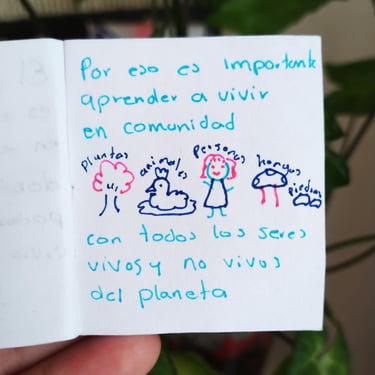 Por eso es importante
aprender a vivir
en comunidad
plantas animales personas hongos piedras
con todos los seres
vivos y no vivos
del planeta